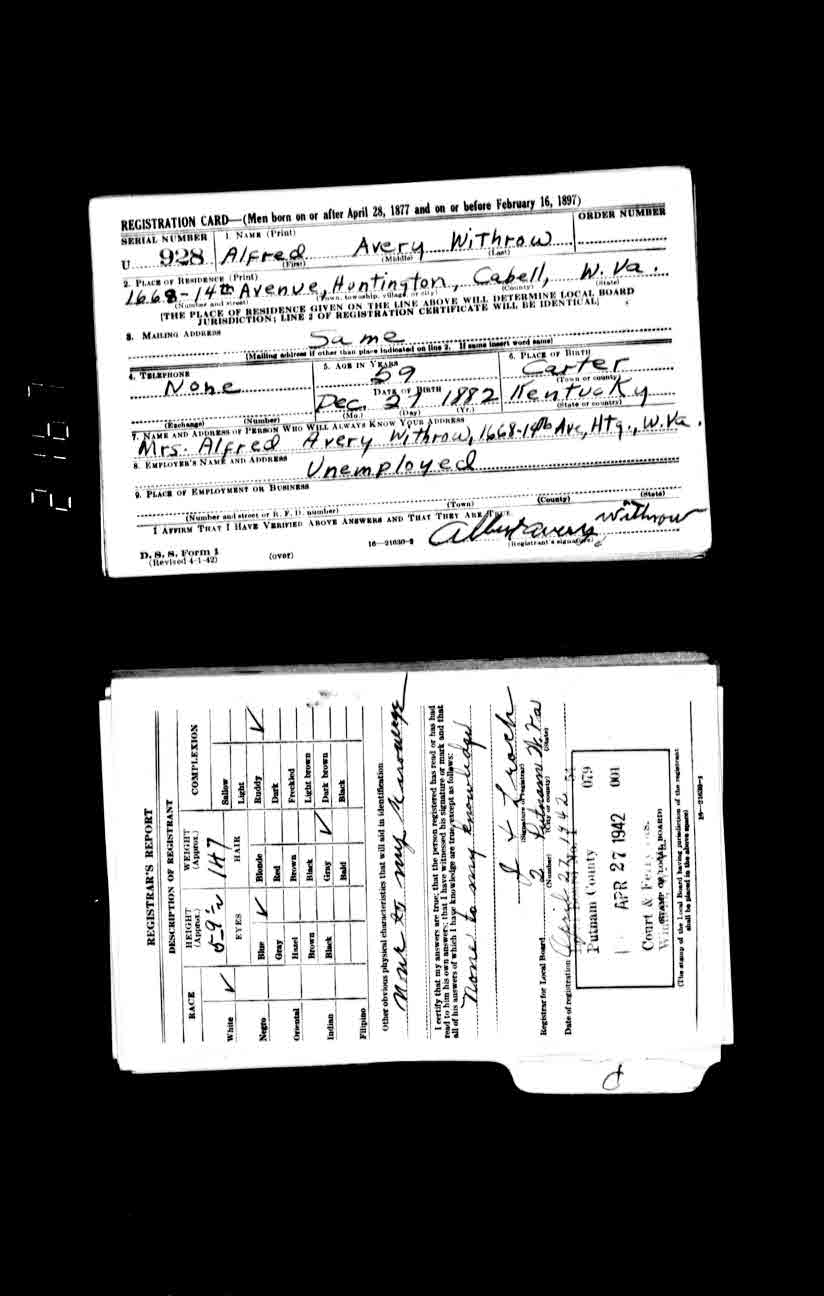 REGISTRATION CARD—(Men born on or after April 28, 1877 and on or before February 16, 1897)
SERIAL NUMBER 1. NAME (Print) ORDER NUMBER
U 928 Alfred Avery Withrow
(First) (Middle) (Last)
2. PLACE OF RESIDENCE (Print)
1668-14th Avenue, Huntington, Cabell, W. Va.
(Number and street) (Town, township, village, or city) (County) (State)
[THE PLACE OF RESIDENCE GIVEN ON THE LINE ABOVE WILL DETERMINE LOCAL BOARD
JURISDICTION; LINE 2 OF REGISTRATION CERTIFICATE WILL BE IDENTICAL]
3. MAILING ADDRESS
Same
(Mailing address if other than place indicated on line 2. If same insert word same)
4. TELEPHONE 5. AGE IN YEARS 6. PLACE OF BIRTH
None 59 Carter
(Town or county)
DATE OF BIRTH
Dec. 27 1882 Kentucky
(Exchange) (Number) (Mo.) (Day) (Yr.) (State or country)
7. NAME AND ADDRESS OF PERSON WHO WILL ALWAYS KNOW YOUR ADDRESS
Mrs. Alfred Avery Withrow, 1668-14th Ave, Htg., W.Va.
8. EMPLOYER'S NAME AND ADDRESS
Unemployed
9. PLACE OF EMPLOYMENT OR BUSINESS
(Number and street or R. F. D. number) (Town) (County) (State)
I AFFIRM THAT I HAVE VERIFIED ABOVE ANSWERS AND THAT THEY ARE TRUE.
Avery Withrow
D. S. S. Form 1 16—21630-2 (Registrant's signature)
(Revised 4-1-42) (over)
2167
REGISTRAR'S REPORT
DESCRIPTION OF REGISTRANT
RACE HEIGHT (Approx.) WEIGHT (Approx.) COMPLEXION
White ✓ 5-9½ 147 Sallow
EYES HAIR Light
Negro Blue ✓ Blonde Ruddy ✓
Gray Red Dark
Oriental Hazel Brown Freckled
Brown Black Light brown
Indian Black Gray ✓ Dark brown
Bald Black
Filipino
Other obvious physical characteristics that will aid in identification
None to my Knowledge
I certify that my answers are true; that the person registered has read or has had
read to him his own answers; that I have witnessed his signature or mark and that
all of his answers of which I have knowledge are true, except as follows:
None to my Knowledge
(Signature of registrar)
Registrar for Local Board 2 Putnam W. Va
(Number) (City or county) (State)
Date of registration April 27, 1942
Putnam County 079
APR 27 1942 001
Court &
(STAMP OF LOCAL BOARD)
(The stamp of the Local Board having jurisdiction of the registrant
shall be placed in the above space)
16—21630-1